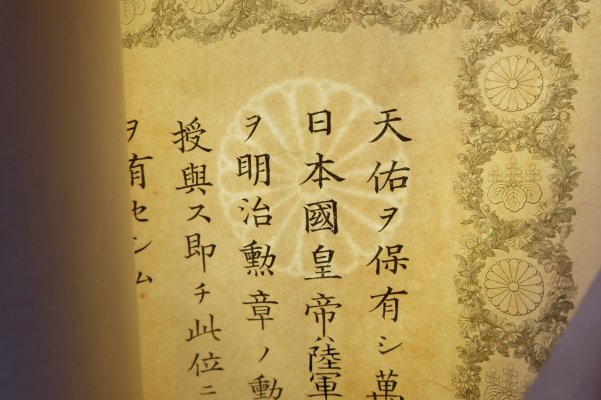 天佑ヲ保有シ萬
日本國皇帝ハ陸軍
ヲ明治勲章ノ勳
授與ス即チ此位ニ
ヲ有セシム